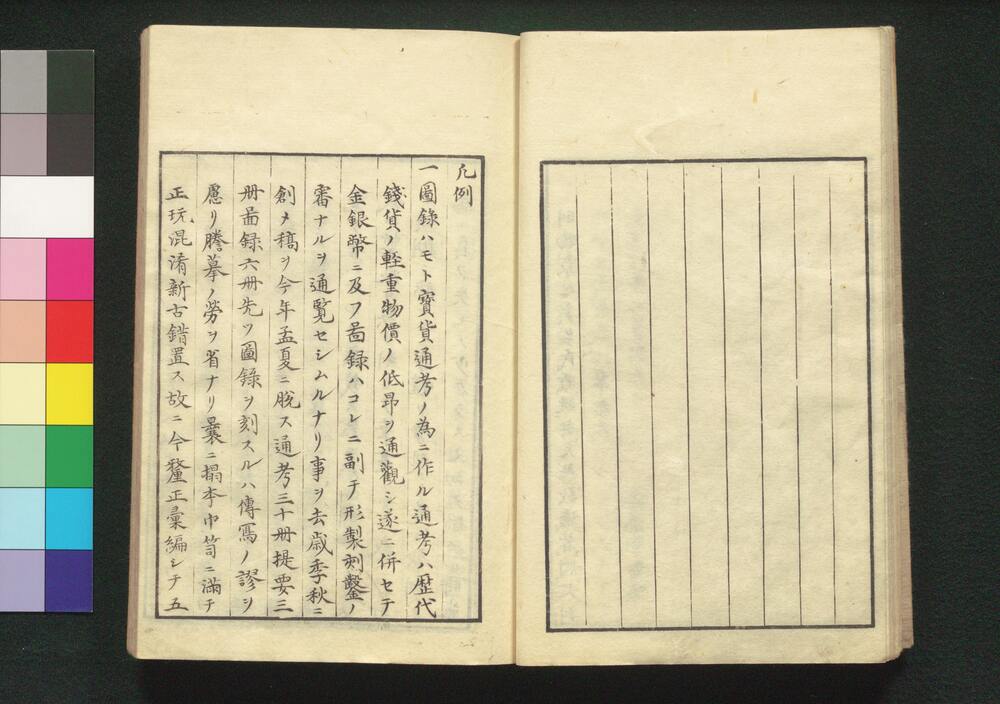 凡例
一圖錄ハモト寳貨通考ノ為ニ作ル通考ハ歴代
錢貨ノ軽重物價ノ低昂ヲ通觀シ遂ニ併セテ
金銀幣ニ及フ啚録ハコレニ副テ形製刻鑿ノ
審ナルヲ通覧セシムルナリ事ヲ去歳季秋ニ
創メ稿ヲ今年孟夏ニ脱ス通考三十册提要三
册啚録六册先ツ圖錄ヲ刻スルハ傳寫ノ謬ヲ
慮リ謄摹ノ勞ヲ省ナリ曩ニ搨本巾笥ニ滿テ
正玩混淆新古錯置ス故ニ今釐正彙編シテ五